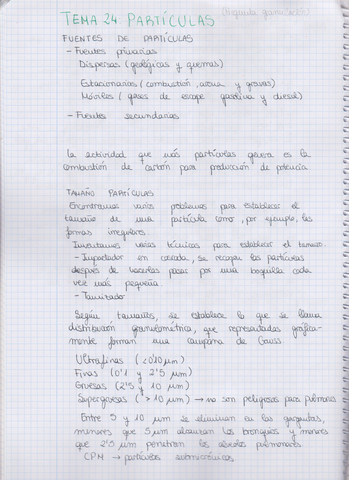 TEMA 24. PARTÍCULAS
FUENTES DE PARTÍCULAS
- Fuentes primarias
Dispersas (geológicas y quemas)
Estacionarias (combustión, arena y gravas)
Móviles (gases de escape gasolina y diesel)
- Fuentes secundarias
La actividad que más partículas genera es la
combustión de carbón para producción de potencia
TAMAÑO PARTÍCULAS
Encontramos varios problemas para establecer el
tamaño de una partícula como, por ejemplo, las
formas irregulares.
varias técnicas para establecer el tamaño.
- Impactador en cascada, se recogen las partículas
después de hacerlas pasar por una boquilla cada
vez más pequeña
- Tamizador
Según tamaños, se establece lo que se llama
distribución granulométrica, que representadas gráfica-
mente forman una campana de Gauss.
Ultrafinas (<0'10 µm)
Finas (0'1 y 2'5 µm)
Gruesas (2'5 y 10 µm)
Supergruesas (>10 µm) → no son peligrosas para pulmones
Entre 5 y 10 µm se eliminan en las gargantas,
menores que 5 µm alcanzan los bronquios y menores
que 2'5 µm, penetran los alveolos pulmonares
CPM → partículas submicrónicas